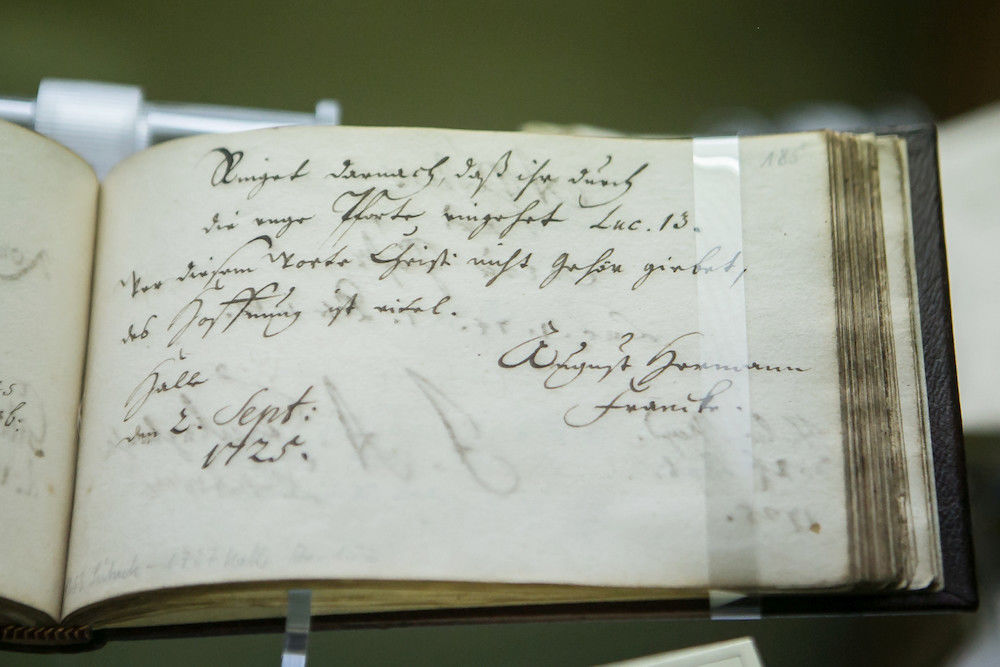 185
Ringet darnach, daß ihr durch
die enge Pforte eingehet Luc. 13.
Wer diesem Worte Christi nicht Gehör giebet,
des Hoffnung ist eitel.
August Hermann
Francke.
Halle
den 2. Sept:
1725.